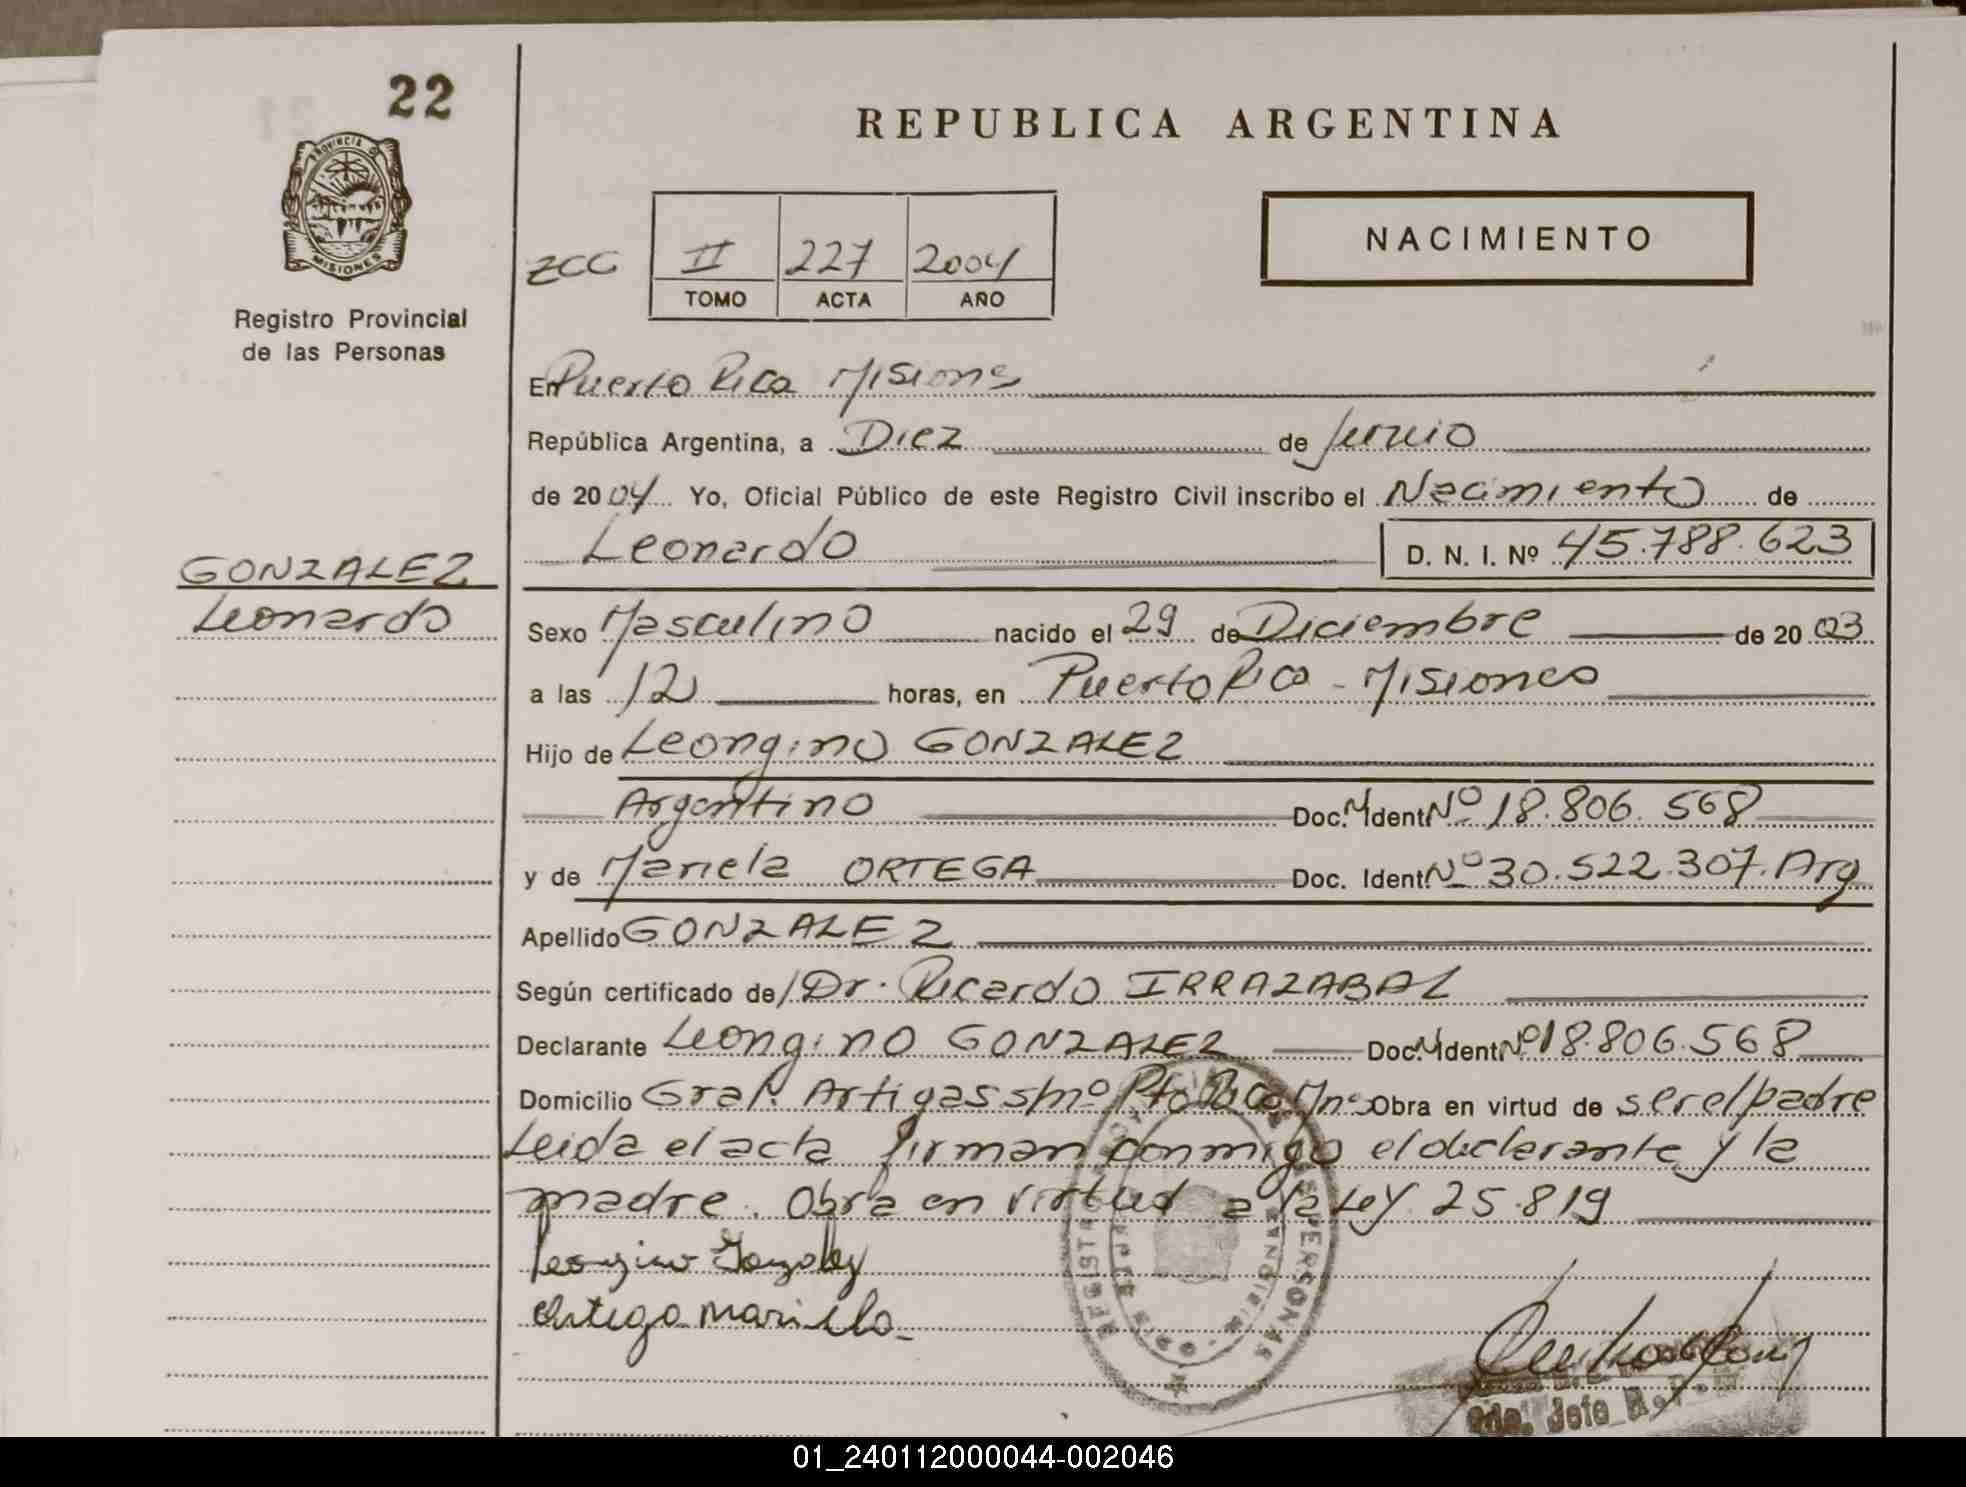 22
PROVINCIA DE
MISIONES
Registro Provincial
de las Personas
REPUBLICA ARGENTINA
NACIMIENTO
ZCC II 227 2004
TOMO ACTA AÑO
En Puerto Rico Misiones
República Argentina, a Diez de Junio
de 2004 Yo, Oficial Público de este Registro Civil inscribo el Nacimiento de
Leonardo D. N. I. Nº 45.788.623
GONZALEZ
Leonardo
Sexo Masculino nacido el 29 de Diciembre de 2003
a las 12 horas, en Puerto Rico - Misiones
Hijo de Leongino GONZALEZ
Argentino Doc. M Ident Nº 18.806.568
y de Mariela ORTEGA Doc. Ident. Nº 30.522.307. Arg
Apellido GONZALEZ
Según certificado de/Dr. Ricardo IRRAZABAL
Declarante Leongino GONZALEZ Doc. M Ident Nº 18.806.568
Domicilio Gral. Artigas s/nº Pto Rico Mnes Obra en virtud de ser el padre
Leida el acta firman conmigo el declarante y la
madre. Obra en virtud a la Ley 25.819
Leongino Gonzalez
Ortega Mariela
REGISTRO PERSONAS
Jefe R.P.
01_240112000044-002046